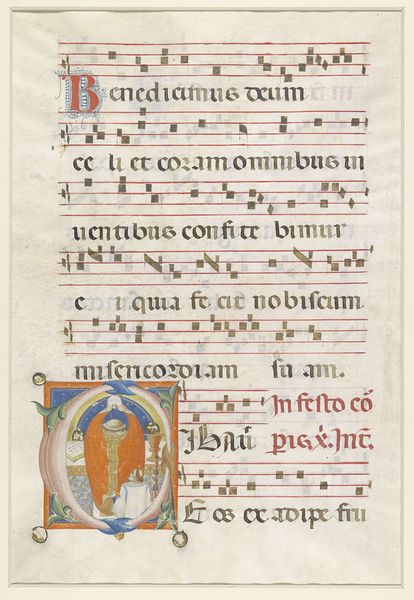 Benedicimus deum
ce li et coram omnibus ui
uentibus confite bimur
e i quia fe cit nobiscum
misericordiam su am.
In festo cō
pris x̄. Int.
E os ex adipe fru